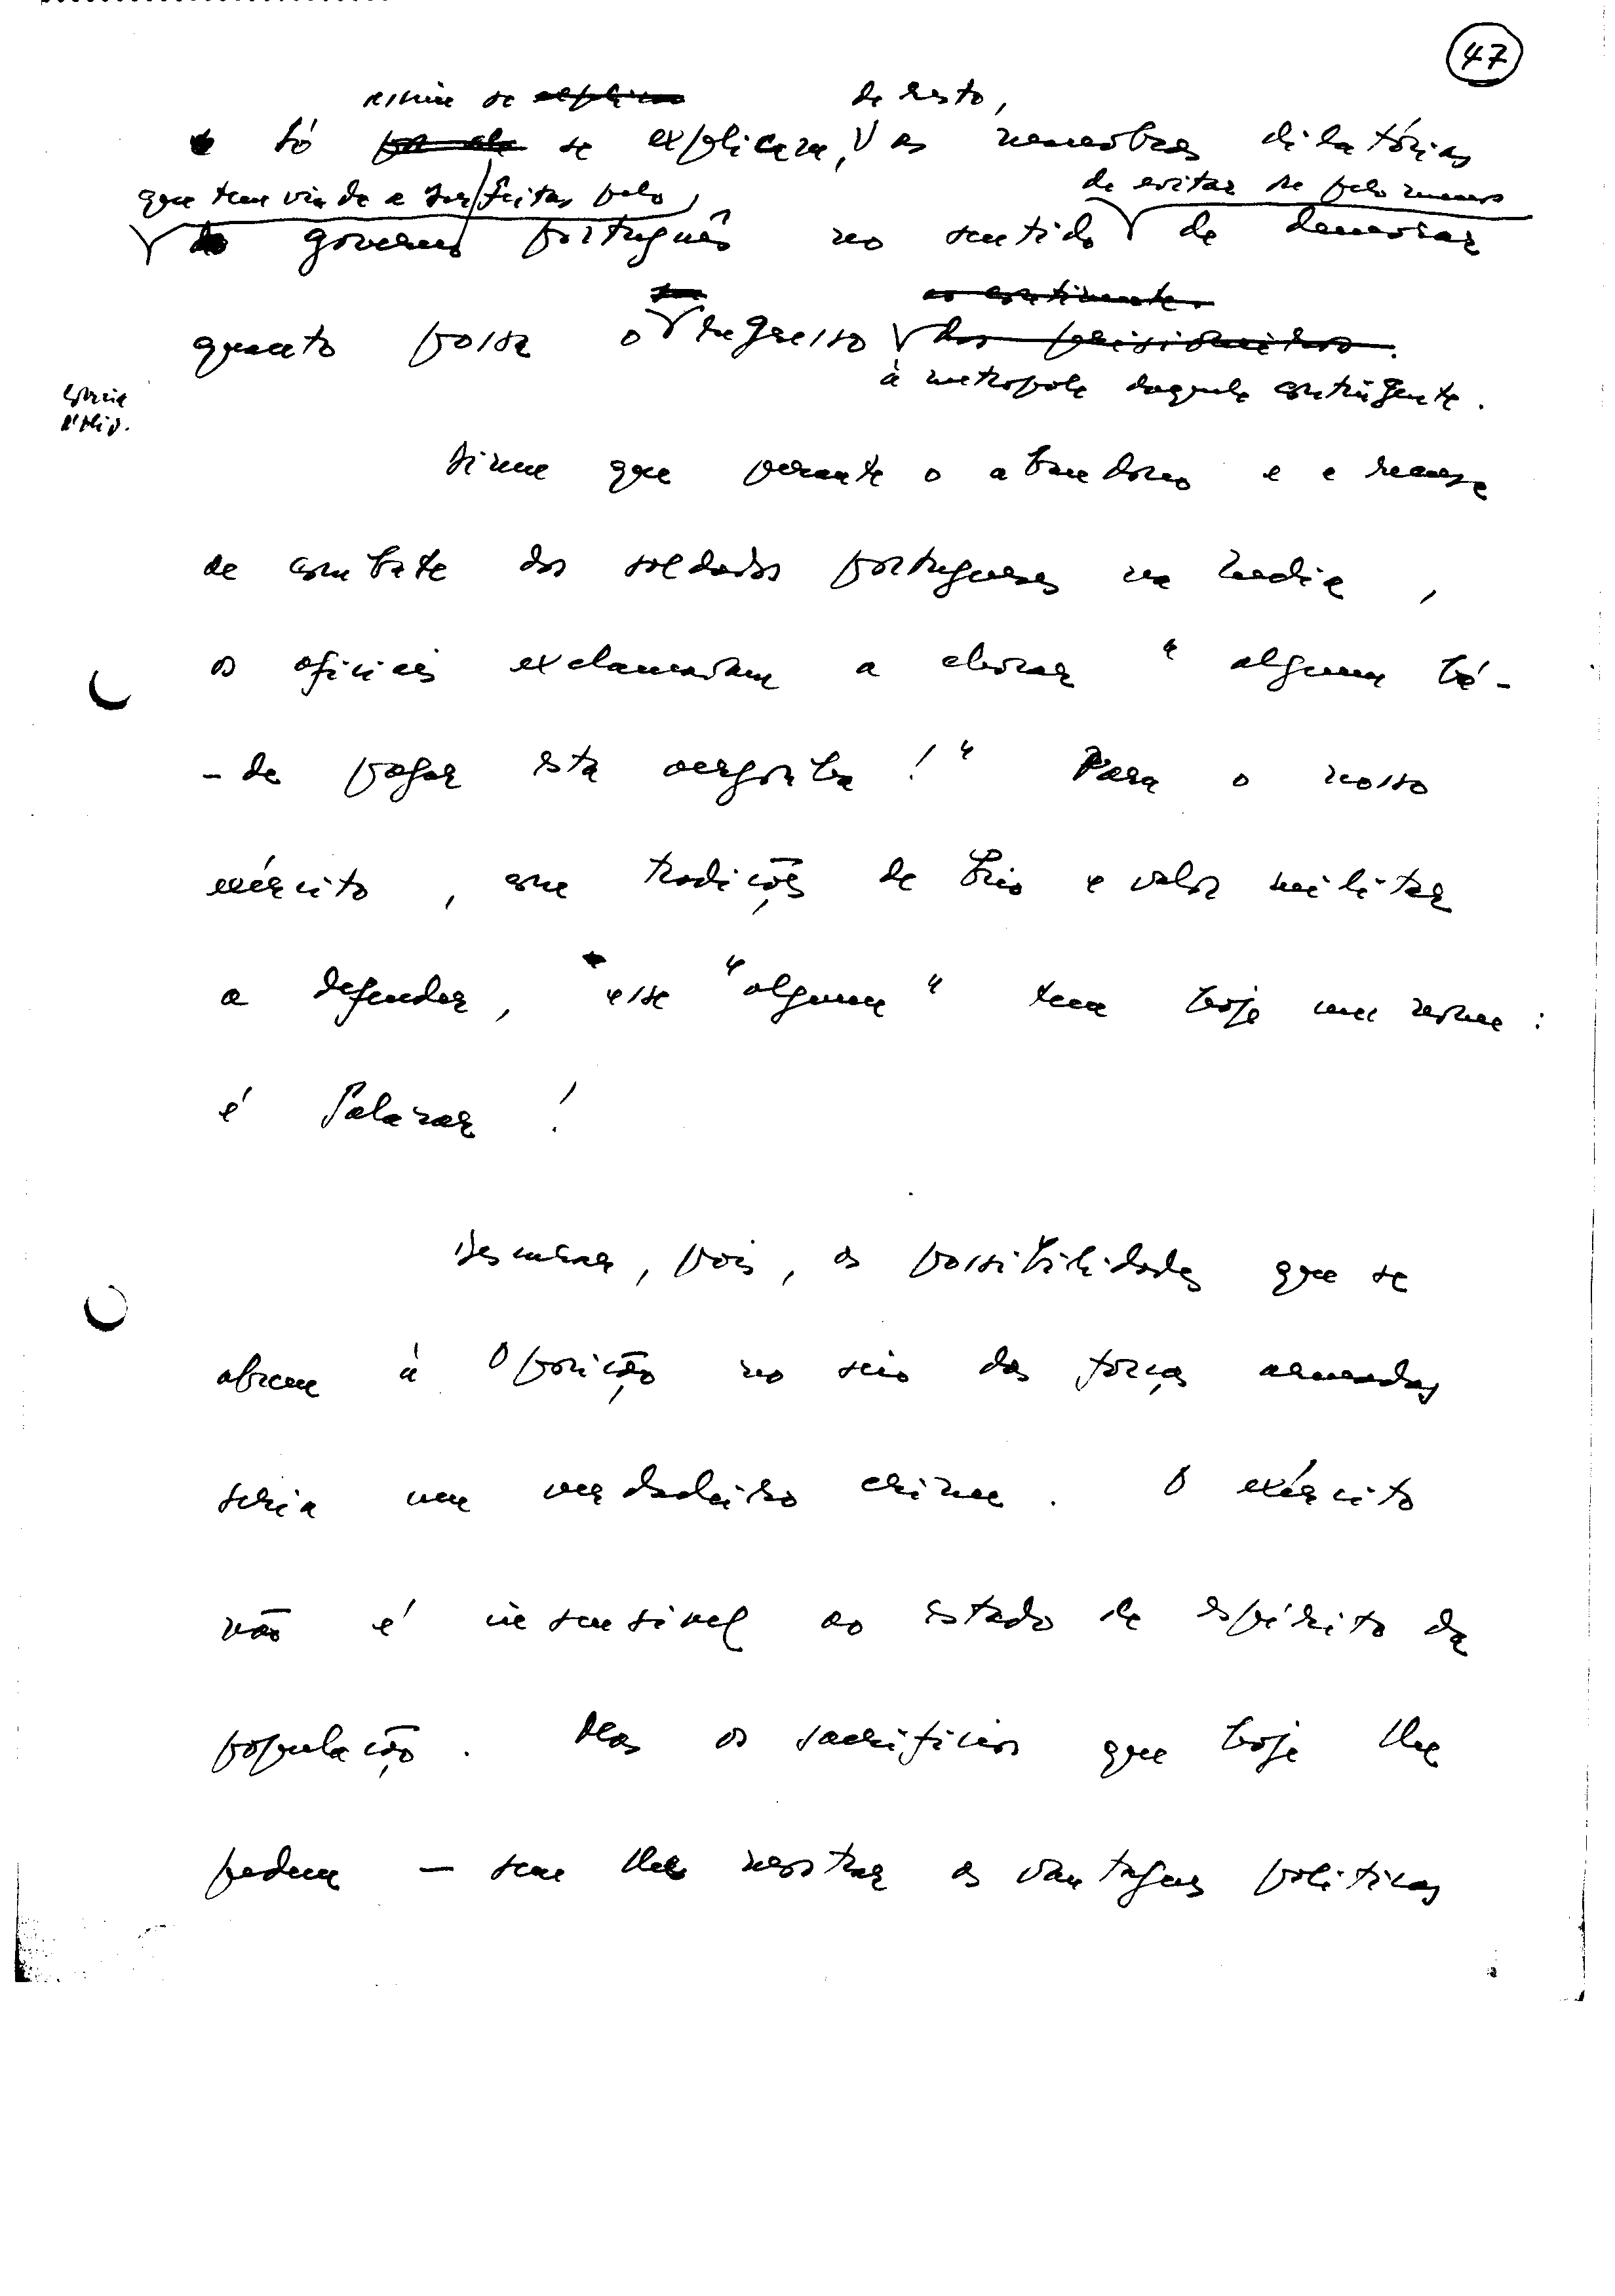 47
assim se explica de resto,
só por ela se explicam, as manobras dilatórias
que tem vindo a ser feitas pelo de evitar ou pelo menos
do governo português no sentido de demorar
quanto possa o regresso dos prisioneiros.
à metrópole daquele contingente.
que perante o abandono e a recusa
de combate dos soldados portugueses na India,
os oficiais exclamavam a chorar "alguem há-
-de pagar esta vergonha!" Para o nosso
exército, com tradições de brio e valor militar
a defender, esse "alguem" tem hoje um nome:
é Salazar!
Desprezar, pois, as possibilidades que se
abrem à Oposição no seio das forças armadas
seria um verdadeiro crime. O exército
não é insensivel ao estado de espírito da
população. Mas os sacrificios que hoje lhe
pedem — sem lhe mostrar as vantagens politicas